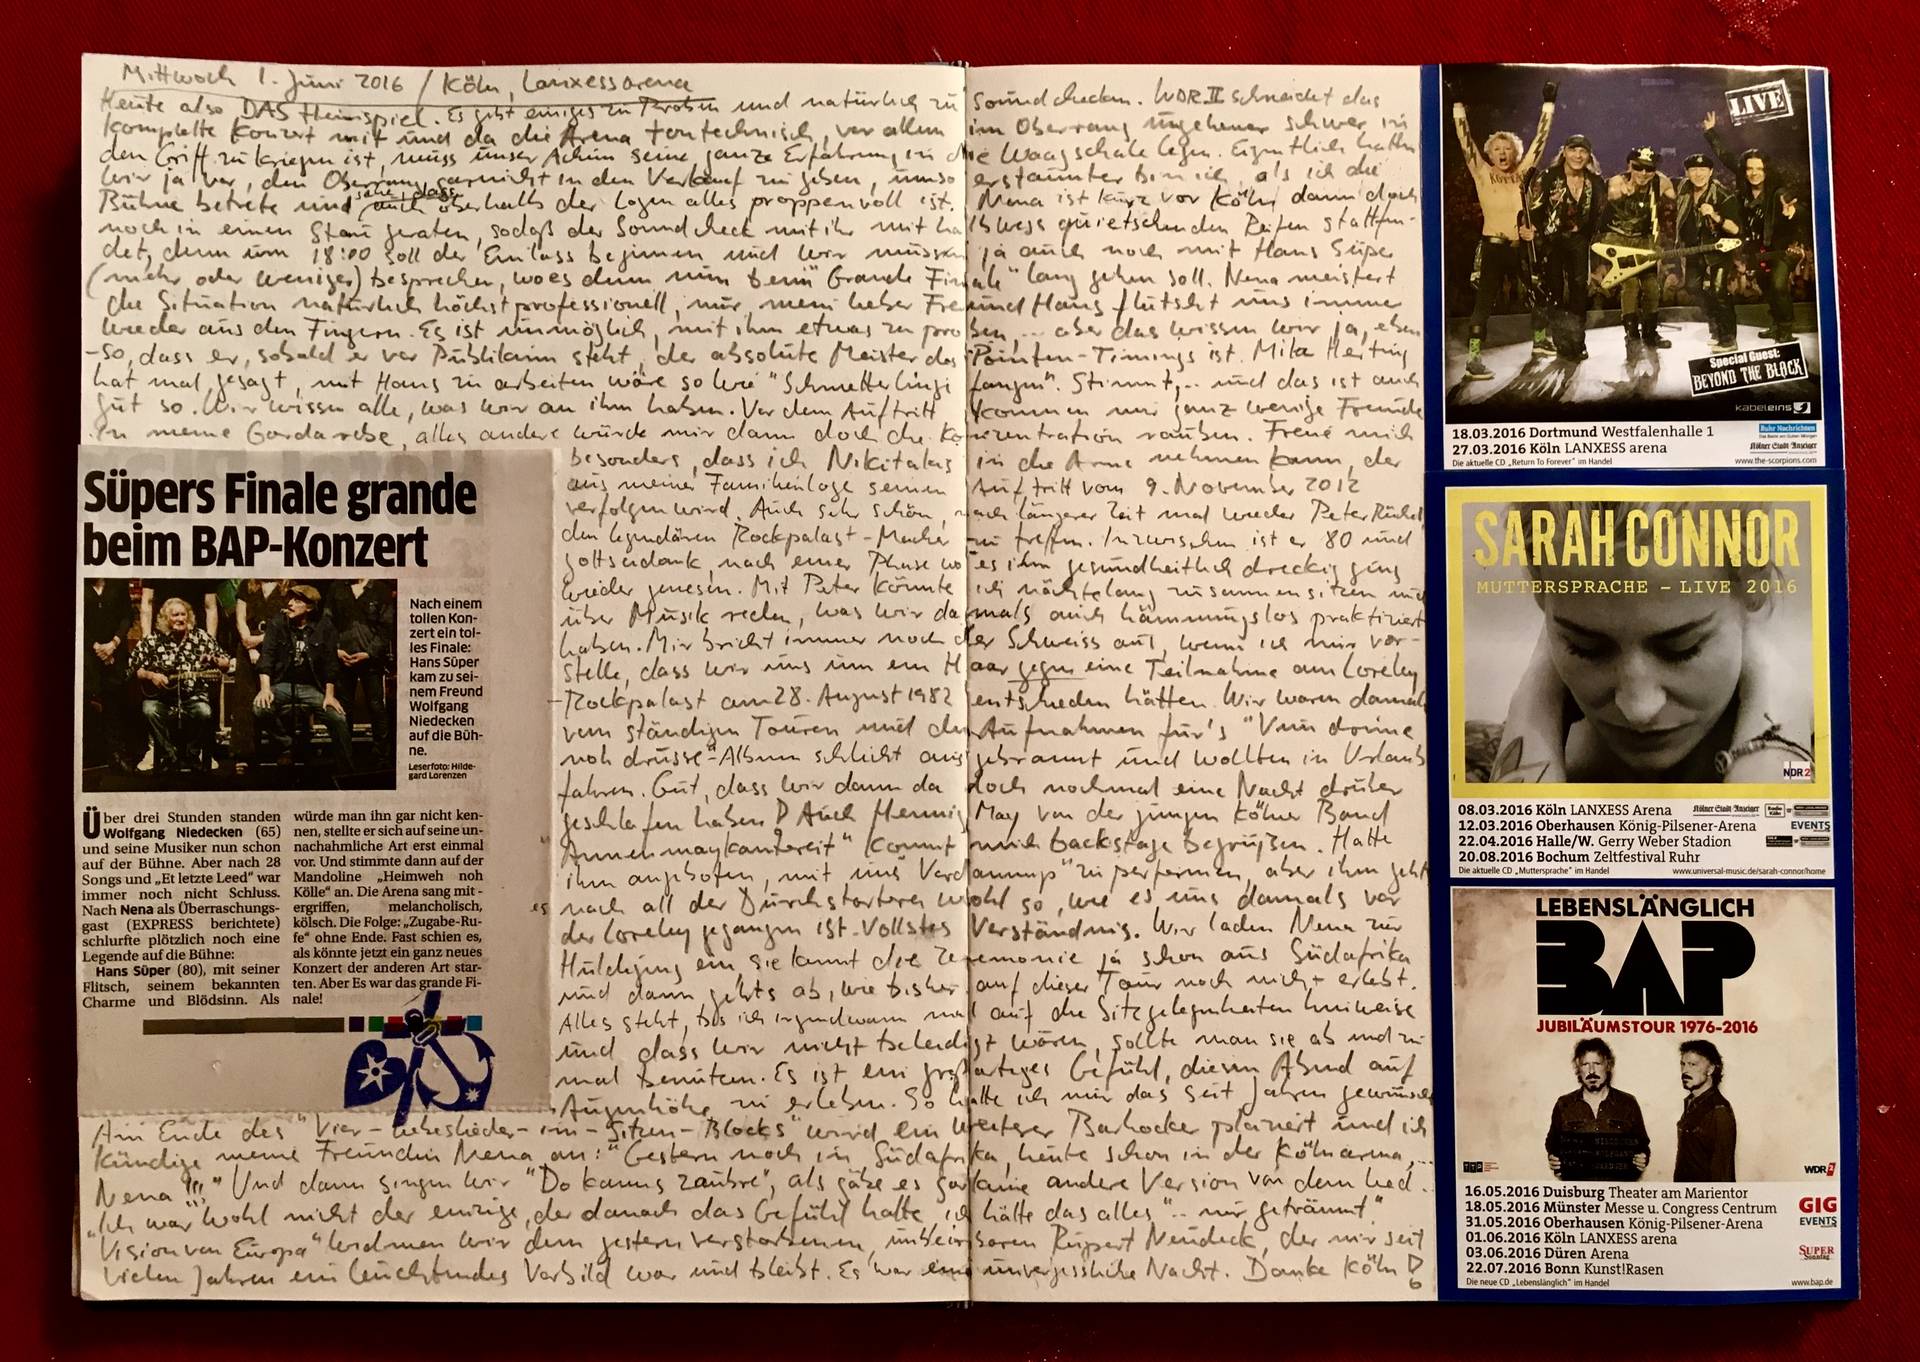 Mittwoch 1. Juni 2016 / Köln, Lanxessarena
Heute also DAS Heimspiel. Es gibt einiges zu Proben und natürlich zu soundchecken. WDR II schneidet das
komplette Konzert mit und da die Arena tontechnisch, vor allem im Oberrang ungeheuer schwer in
den Griff zu kriegen ist, muss unser Achim seine ganze Erfahrung in die Waagschale legen. Eigentlich hatten
wir ja vor, den Oberrang garnicht in den Verkauf zu geben, umso erstaunter bin ich, als ich die
Bühne betrete und sehe, dass auch oberhalb der Logen alles proppenvoll ist. Nena ist kurz vor Köln dann doch
noch in einen Stau geraten, sodaß der Soundcheck mit ihr mit quietschenden Reifen stattfin-
det, denn um 18:00 soll der Einlass beginnen und wir müssen ja auch noch mit Hans Süper
(mehr oder weniger) besprechen, wo es denn nun beim "Grande Finale" lang gehen soll. Nena meistert
die Situation natürlich höchst professionell, nur mein lieber Freund Hans flutscht uns immer
wieder aus den Fingern. Es ist unmöglich, mit ihm etwas zu proben,... aber das wissen wir ja, eben
-so, dass er, sobald er vor Publikum steht, der absolute Meister des Pointen-Timings ist. Mike Herting
hat mal gesagt, mit Hans zu arbeiten wäre so wie "Schmetterlinge fangen". Stimmt,.. und das ist auch
gut so. Wir wissen alle, was wir an ihm haben. Vor dem Auftritt kommen nur ganz wenige Freunde
in meine Garderobe, alles andere würde mir dann doch die Konzentration rauben. Freue mich
besonders, dass ich Nikitakis in die Arme nehmen kann, der
aus meiner Familienloge seinen Auftritt vom 9. November 2012
verfolgen wird. Auch sehr schön, nach längerer Zeit mal wieder Peter Rüchel,
den legendären Rockpalast-Macher zu treffen. Inzwischen ist er 80 und
gottseidank, nach einer Phase wo es ihm gesundheitlich dreckig ging
wieder genesen. Mit Peter könnte ich nächtelang zusammensitzen und
über Musik reden, was wir damals auch hämmungslos praktiziert
haben. Mir bricht immer noch der Schweiss aus, wenn ich mir vor-
stelle, dass wir uns um ein Haar gegen eine Teilnahme am Loreley
-Rockpalast am 28. August 1982 entschieden hätten. Wir waren damals
vom ständigen Touren und den Aufnahmen für's "Vun drinne
noh drusse"-Album schlicht ausgebrannt und wollten in Urlaub
fahren. Gut, dass wir dann da doch nochmal eine Nacht drüber
geschlafen haben! Auch Hennig May von der jungen Kölner Band
"Annenmaykantereit" kommt mich backstage begrüßen. Hatte
ihm angeboten, mit uns "Verdamp" zu performen, aber ihm geht
es nach all der Durchstarterei wohl so, wie es uns damals vor
der Loreley gegangen ist. Vollstes Verständnis. Wir laden Nena zur
Huldigung ein, sie kennt die Zeremonie ja schon aus Südafrika
und dann gehts ab, wie bisher auf dieser Tour noch nicht erlebt.
Alles steht, bis ich irgendwann mal auf die Sitzgelegenheiten hinweise
und dass wir nicht beleidigt wären, sollte man sie ab und zu
mal benutzen. Es ist ein großartiges Gefühl, diesen Abend auf
Augenhöhe zu erleben. So hatte ich mir das seit Jahren gewünscht
Am Ende des "Vier-Liebeslieder-im-Sitzen-Blocks" wird ein weiterer Barhocker plaziert und ich
kündige meine Freundin Nena an: "Gestern noch in Südafrika, heute schon in der Kölnarena,...
Nena!!!" Und dann singen wir "Do kanns zaubre", als gäbe es gar keine andere Version von dem Lied.
Ich war wohl nicht der einzige, der danach das Gefühl hatte, ich hätte das alles "..nur geträumt".
"Vision von Europa" widmen wir dem gestern verstorbenen, unbeirrbaren Rupert Neudeck, der mir seit
vielen Jahren ein leuchtendes Vorbild war und bleibt. Es war eine unvergessliche Nacht. Danke Köln!
Süpers Finale grande
beim BAP-Konzert
Nach einem
tollen Kon-
zert ein tol-
les Finale:
Hans Süper
kam zu sei-
nem Freund
Wolfgang
Niedecken
auf die Büh-
ne.
Leserfoto: Hilde-
gard Lorenzen
Über drei Stunden standen
Wolfgang Niedecken (65)
und seine Musiker nun schon
auf der Bühne. Aber nach 28
Songs und „Et letzte Leed“ war
immer noch nicht Schluss.
Nach Nena als Überraschungs-
gast (EXPRESS berichtete)
schlurfte plötzlich noch eine
Legende auf die Bühne:
Hans Süper (80), mit seiner
Flitsch, seinem bekannten
Charme und Blödsinn. Als
würde man ihn gar nicht ken-
nen, stellte er sich auf seine un-
nachahmliche Art erst einmal
vor. Und stimmte dann auf der
Mandoline „Heimweh noh
Kölle“ an. Die Arena sang mit -
ergriffen, melancholisch,
kölsch. Die Folge: „Zugabe-Ru-
fe“ ohne Ende. Fast schien es,
als könnte jetzt ein ganz neues
Konzert der anderen Art star-
ten. Aber Es war das grande Fi-
nale!
LIVE
Special Guest:
BEYOND THE BLACK
kabeleins
18.03.2016 Dortmund Westfalenhalle 1
27.03.2016 Köln LANXESS arena
Die aktuelle CD „Return To Forever“ im Handel
Ruhr Nachrichten
Kölner Stadt-Anzeiger
www.the-scorpions.com
SARAH CONNOR
MUTTERSPRACHE – LIVE 2016
NDR 2
08.03.2016 Köln LANXESS Arena
12.03.2016 Oberhausen König-Pilsener-Arena
22.04.2016 Halle/W. Gerry Weber Stadion
20.08.2016 Bochum Zeltfestival Ruhr
Die aktuelle CD „Muttersprache“ im Handel
Kölner Stadt-Anzeiger
EVENTS
www.universal-music.de/sarah-connor/home
LEBENSLÄNGLICH
BAP
JUBILÄUMSTOUR 1976-2016
WDR 2
16.05.2016 Duisburg Theater am Marientor
18.05.2016 Münster Messe u. Congress Centrum
31.05.2016 Oberhausen König-Pilsener-Arena
01.06.2016 Köln LANXESS arena
03.06.2016 Düren Arena
22.07.2016 Bonn Kunst!Rasen
Die neue CD „Lebenslänglich“ im Handel
GIG
EVENTS
SUPER
Sonntag
www.bap.de